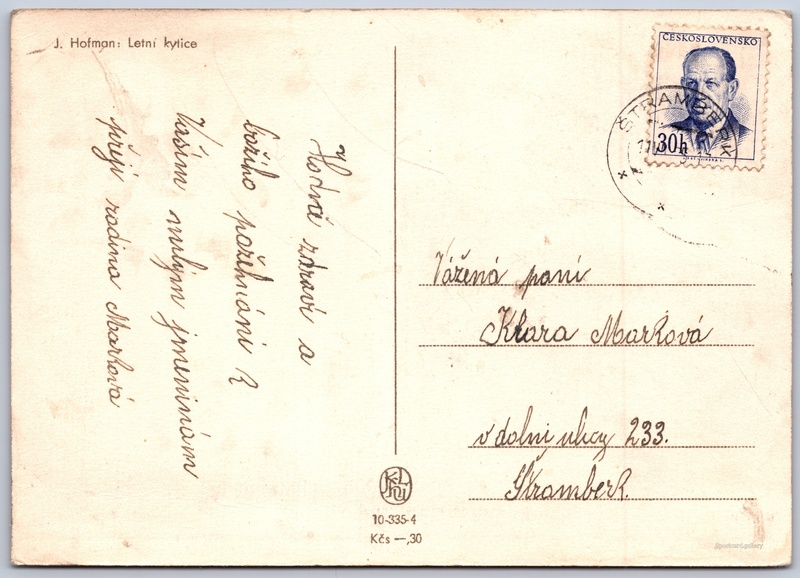 J. Hofman: Letní kytice
Hodně zdraví a
božího požehnání k
Vašim milým jmeninám
přeji rodina Marková
ČESKOSLOVENSKO
30h
ŠTRAMBERK
Vážená paní
Klara Marková
v dolni ulicy 233.
Štramberk.
10-335-4
Kčs —,30